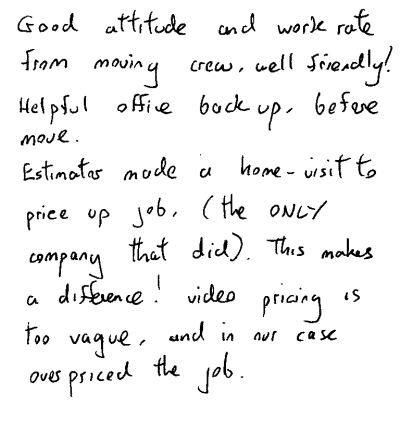 Good attitude and work rate
from moving crew, well friendly!
Helpful office back up, before
move.
Estimator made a home-visit to
price up job, (the ONLY
company that did). This makes
a difference! video pricing is
too vague, and in our case
overpriced the job.